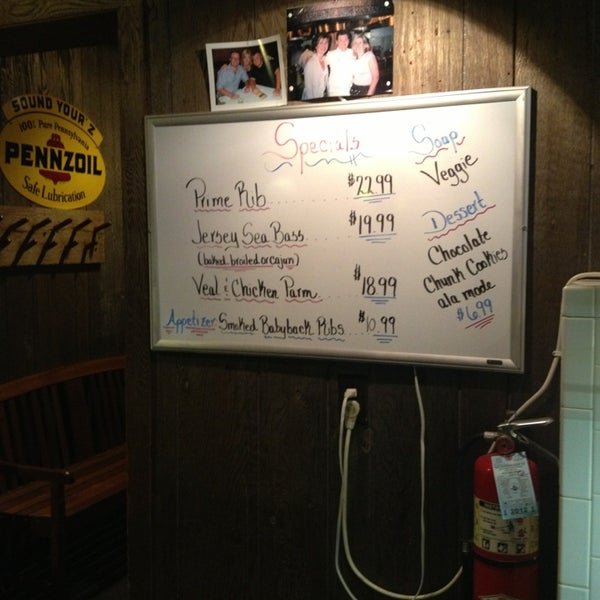 SOUND YOUR 'Z'
100% Pure Pennsylvania
PENNZOIL
Safe Lubrication
Specials
Prime Rib $22.99
Jersey Sea Bass $19.99
(baked broiled or cajun)
Veal & Chicken Parm $18.99
Appetizer Smoked Babyback Ribs $10.99
Soap
Veggie
Dessert
Chocolate
Chunk Cookies
ala mode
$6.99
2012